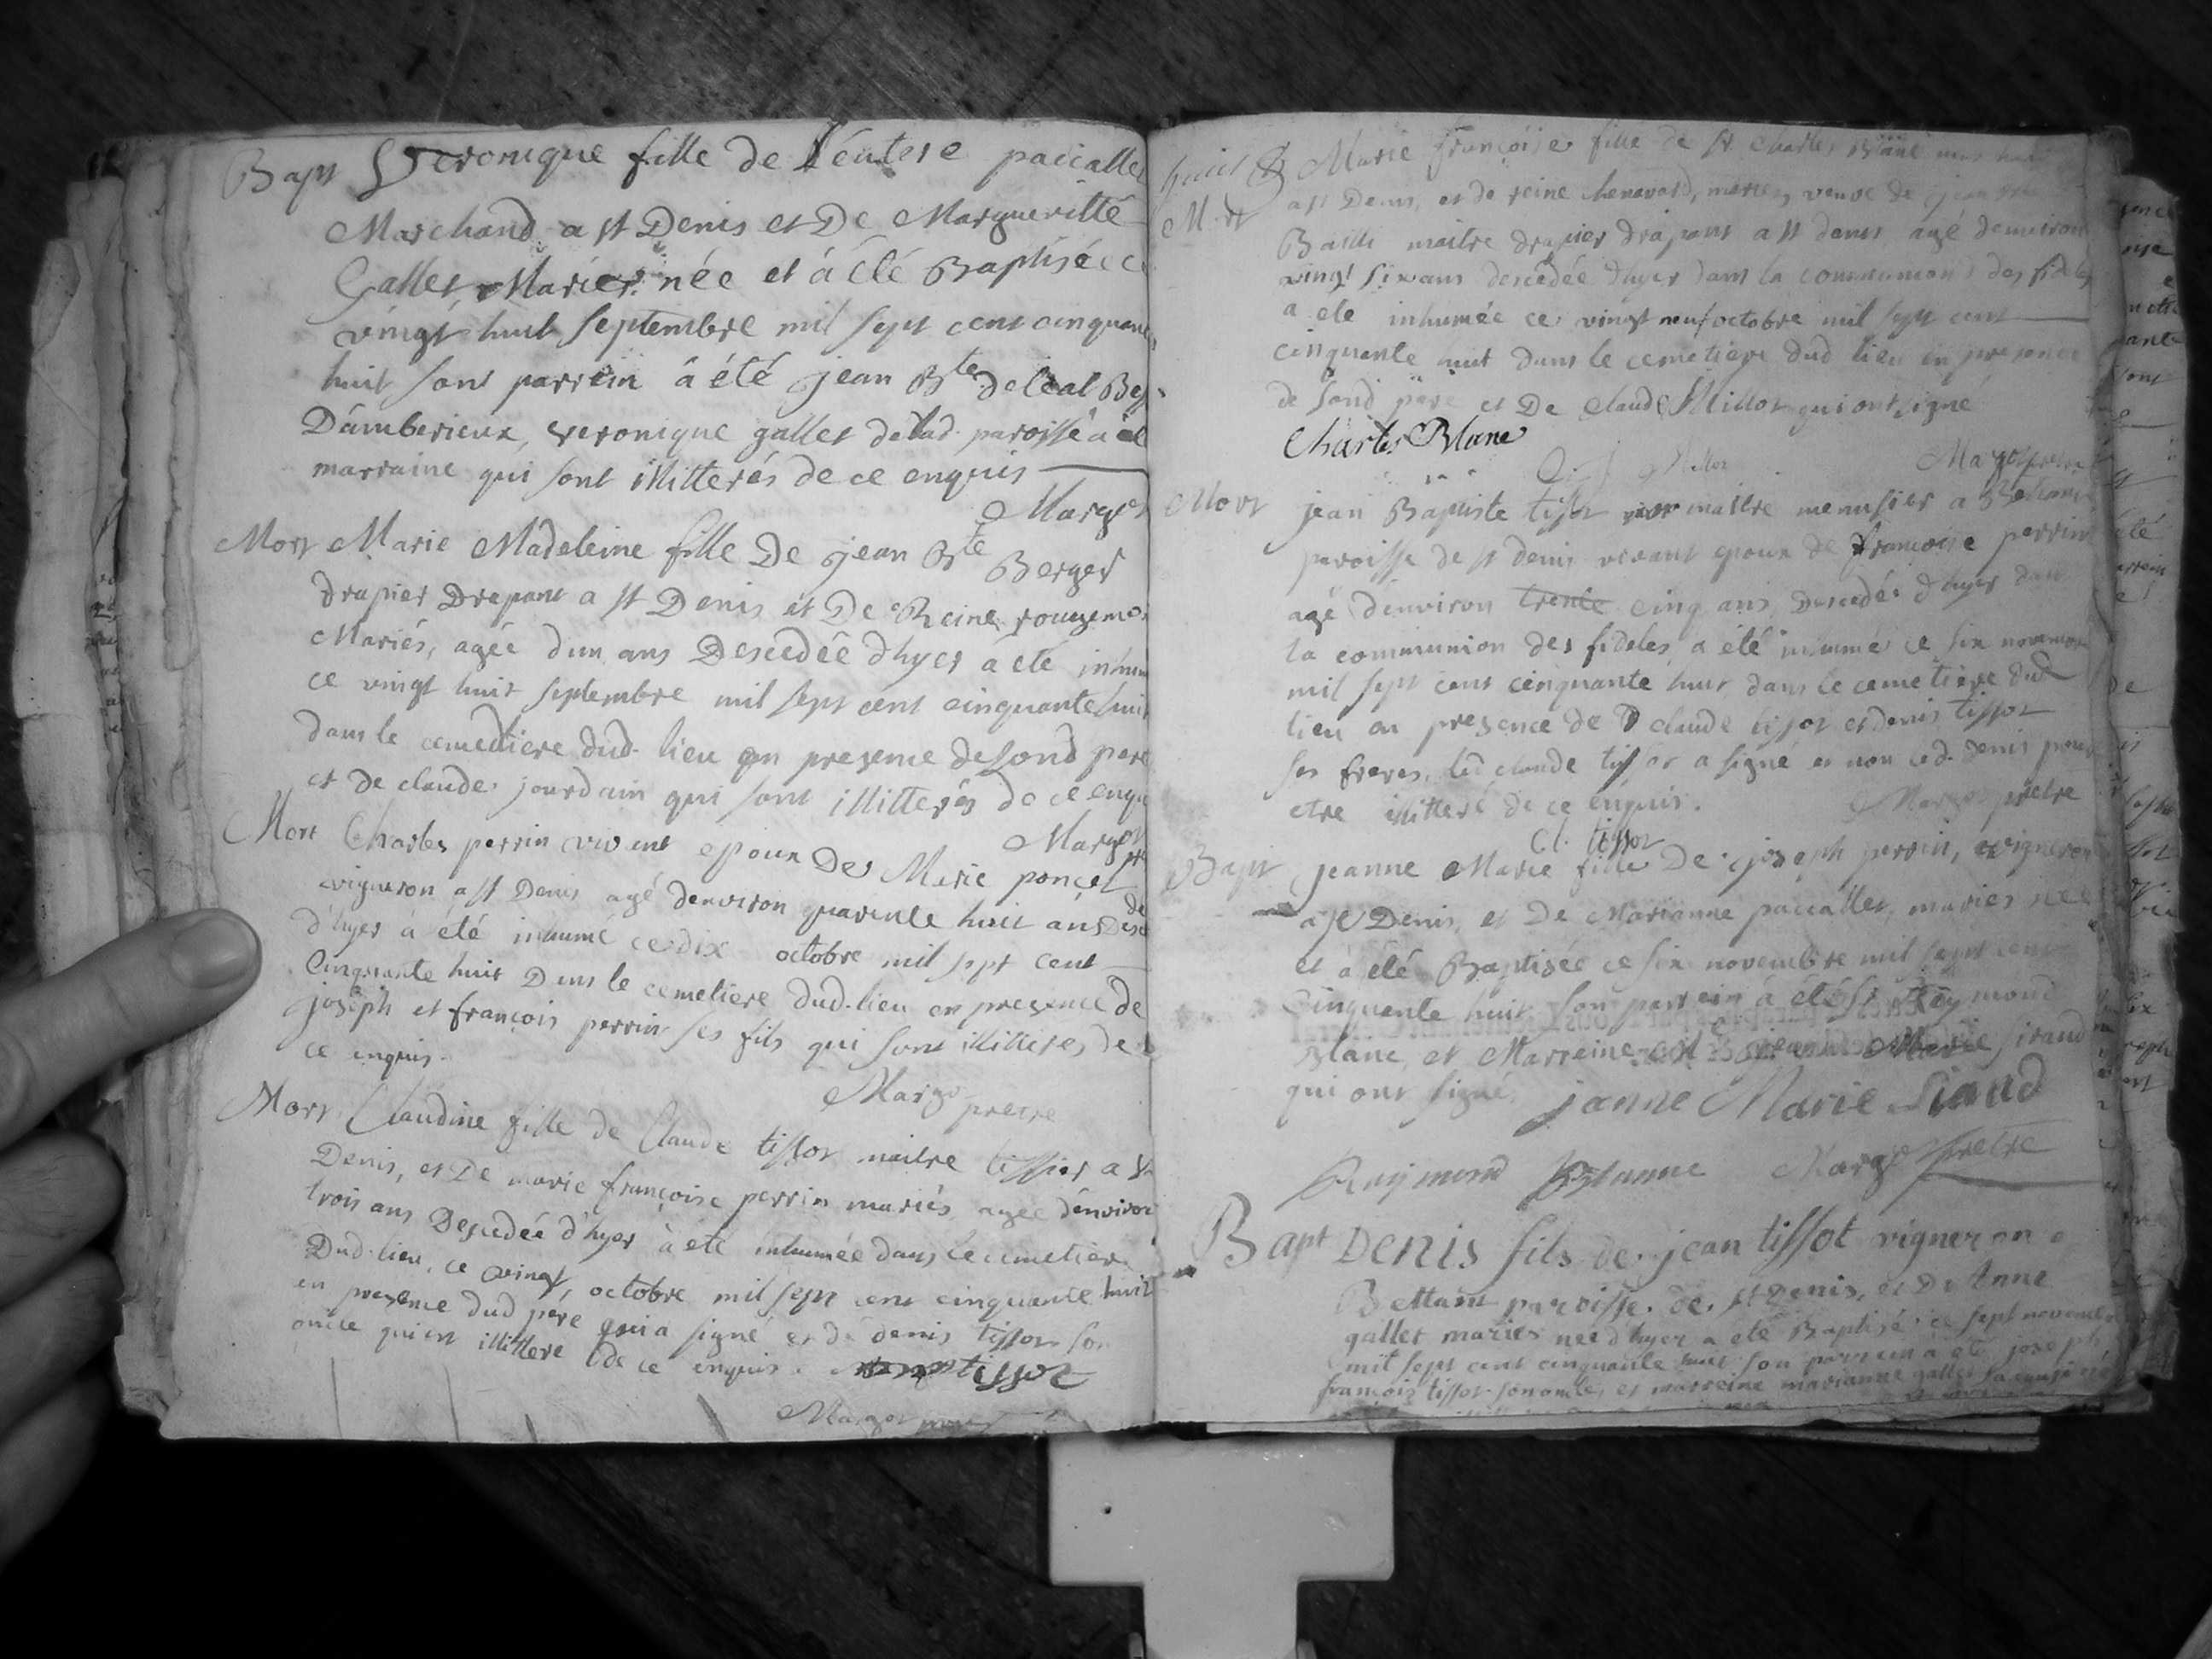 Bapt Veronique fille de Leutere paccallet
Marchand a st Denis et De Margueritte
Gallet, Mariés née et á été Baptisée ce
vingt huit Septembre mil sept cent cinquante
huit son parrein â été jean Bte
Dâmberieux, veronique gallet de lad. paroisse a
marraine qui sont illitterés de ce enquis
Margot
Mort Marie Madeleine fille De jean Bte Berger
drapier Drapant a st Denis et De Reine
Mariés, agée dun ans Descedée d'hyer a eté
ce vingt huit septembre mil sept cent cinquante huit
dans le cemettiere dud. lieu en presence de Sond pere
et de claude jourdain qui sont illitterés de ce
Margot
Mort Charles perrin vivent epoux De Marie ponçet
vigneron a st Denis agé denviron quarente huit ans
d'hyer à été inhumé ce dix octobre mil sept cent
Cinquante huit Dans le cemetiere dud. lieu en presence de
joseph et françois perrin ses fils qui sont illitteres de
ce enquis.
Margot pretre
Mort Claudine fille de Claude tissot maitre tissier a st
Denis, et De marie françoise perrin mariés, agée dénviron
trois ans Descedée d'hyer à eté inhumée dans le cemetiere
Dud. lieu, ce vingt octobre mil sept cent cinquante huit
en presence dud père qui a signé et de denis tissot son
oncle qui est illittere de ce enquis. tissot
Margot
Mort Marie françoise fille de Sr. Charles Blanc
a st Denis, et de reine chenavard, mariés, veuve de jean
Bailli maitre drapier drapant a st denis agé denviron
vingt six ans descedée d'hyer dans la communion des fideles
a ete inhumée ce vingt neuf octobre mil sept cent
cinquante huit dans le cemetiere dud lieu en presence
de Sond père et De claude Millot qui ont signé
Charles Blanc
Millot
Margot pretre
Mort jean Baptiste tissot maitre menusier a Bettant
paroisse de st denis vivant epoux de françoise perrin
agé d'environ trente cinq ans, Descedé d'hyer dans
la communion des fideles a été inhumé ce six novembre
mil sept cent cinquante huit dans le cemetiere dud
lieu en presence de claude tissot et denis tissot
ses freres, led claude tissot a signé et non led. denis pour
etre illitteré de ce enquis. Margot pretre
Cl. tissot
Bapt jeanne Marie fille De joseph perrin, vigneron
a st Denis, et De Marianne paccallet, mariés née
et à été Baptisée ce six novembre mil sept cent
Cinquante huit Son parrein à eté Sr Reymond
Blanc, et Marreine jeanne Marie sirand
qui ont signé. janne Marie Sirand
Raymond Blanc Margot pretre
Bapt Denis fils de jean tissot vigneron a
Bettant paroisse de st Denis, et De Anne
gallet mariés née d'hyer a eté Baptisé ce sept novembre
mil sept cent cinquante huit son parrein a eté joseph
françois tissot son oncle, et marreine marianne gallet